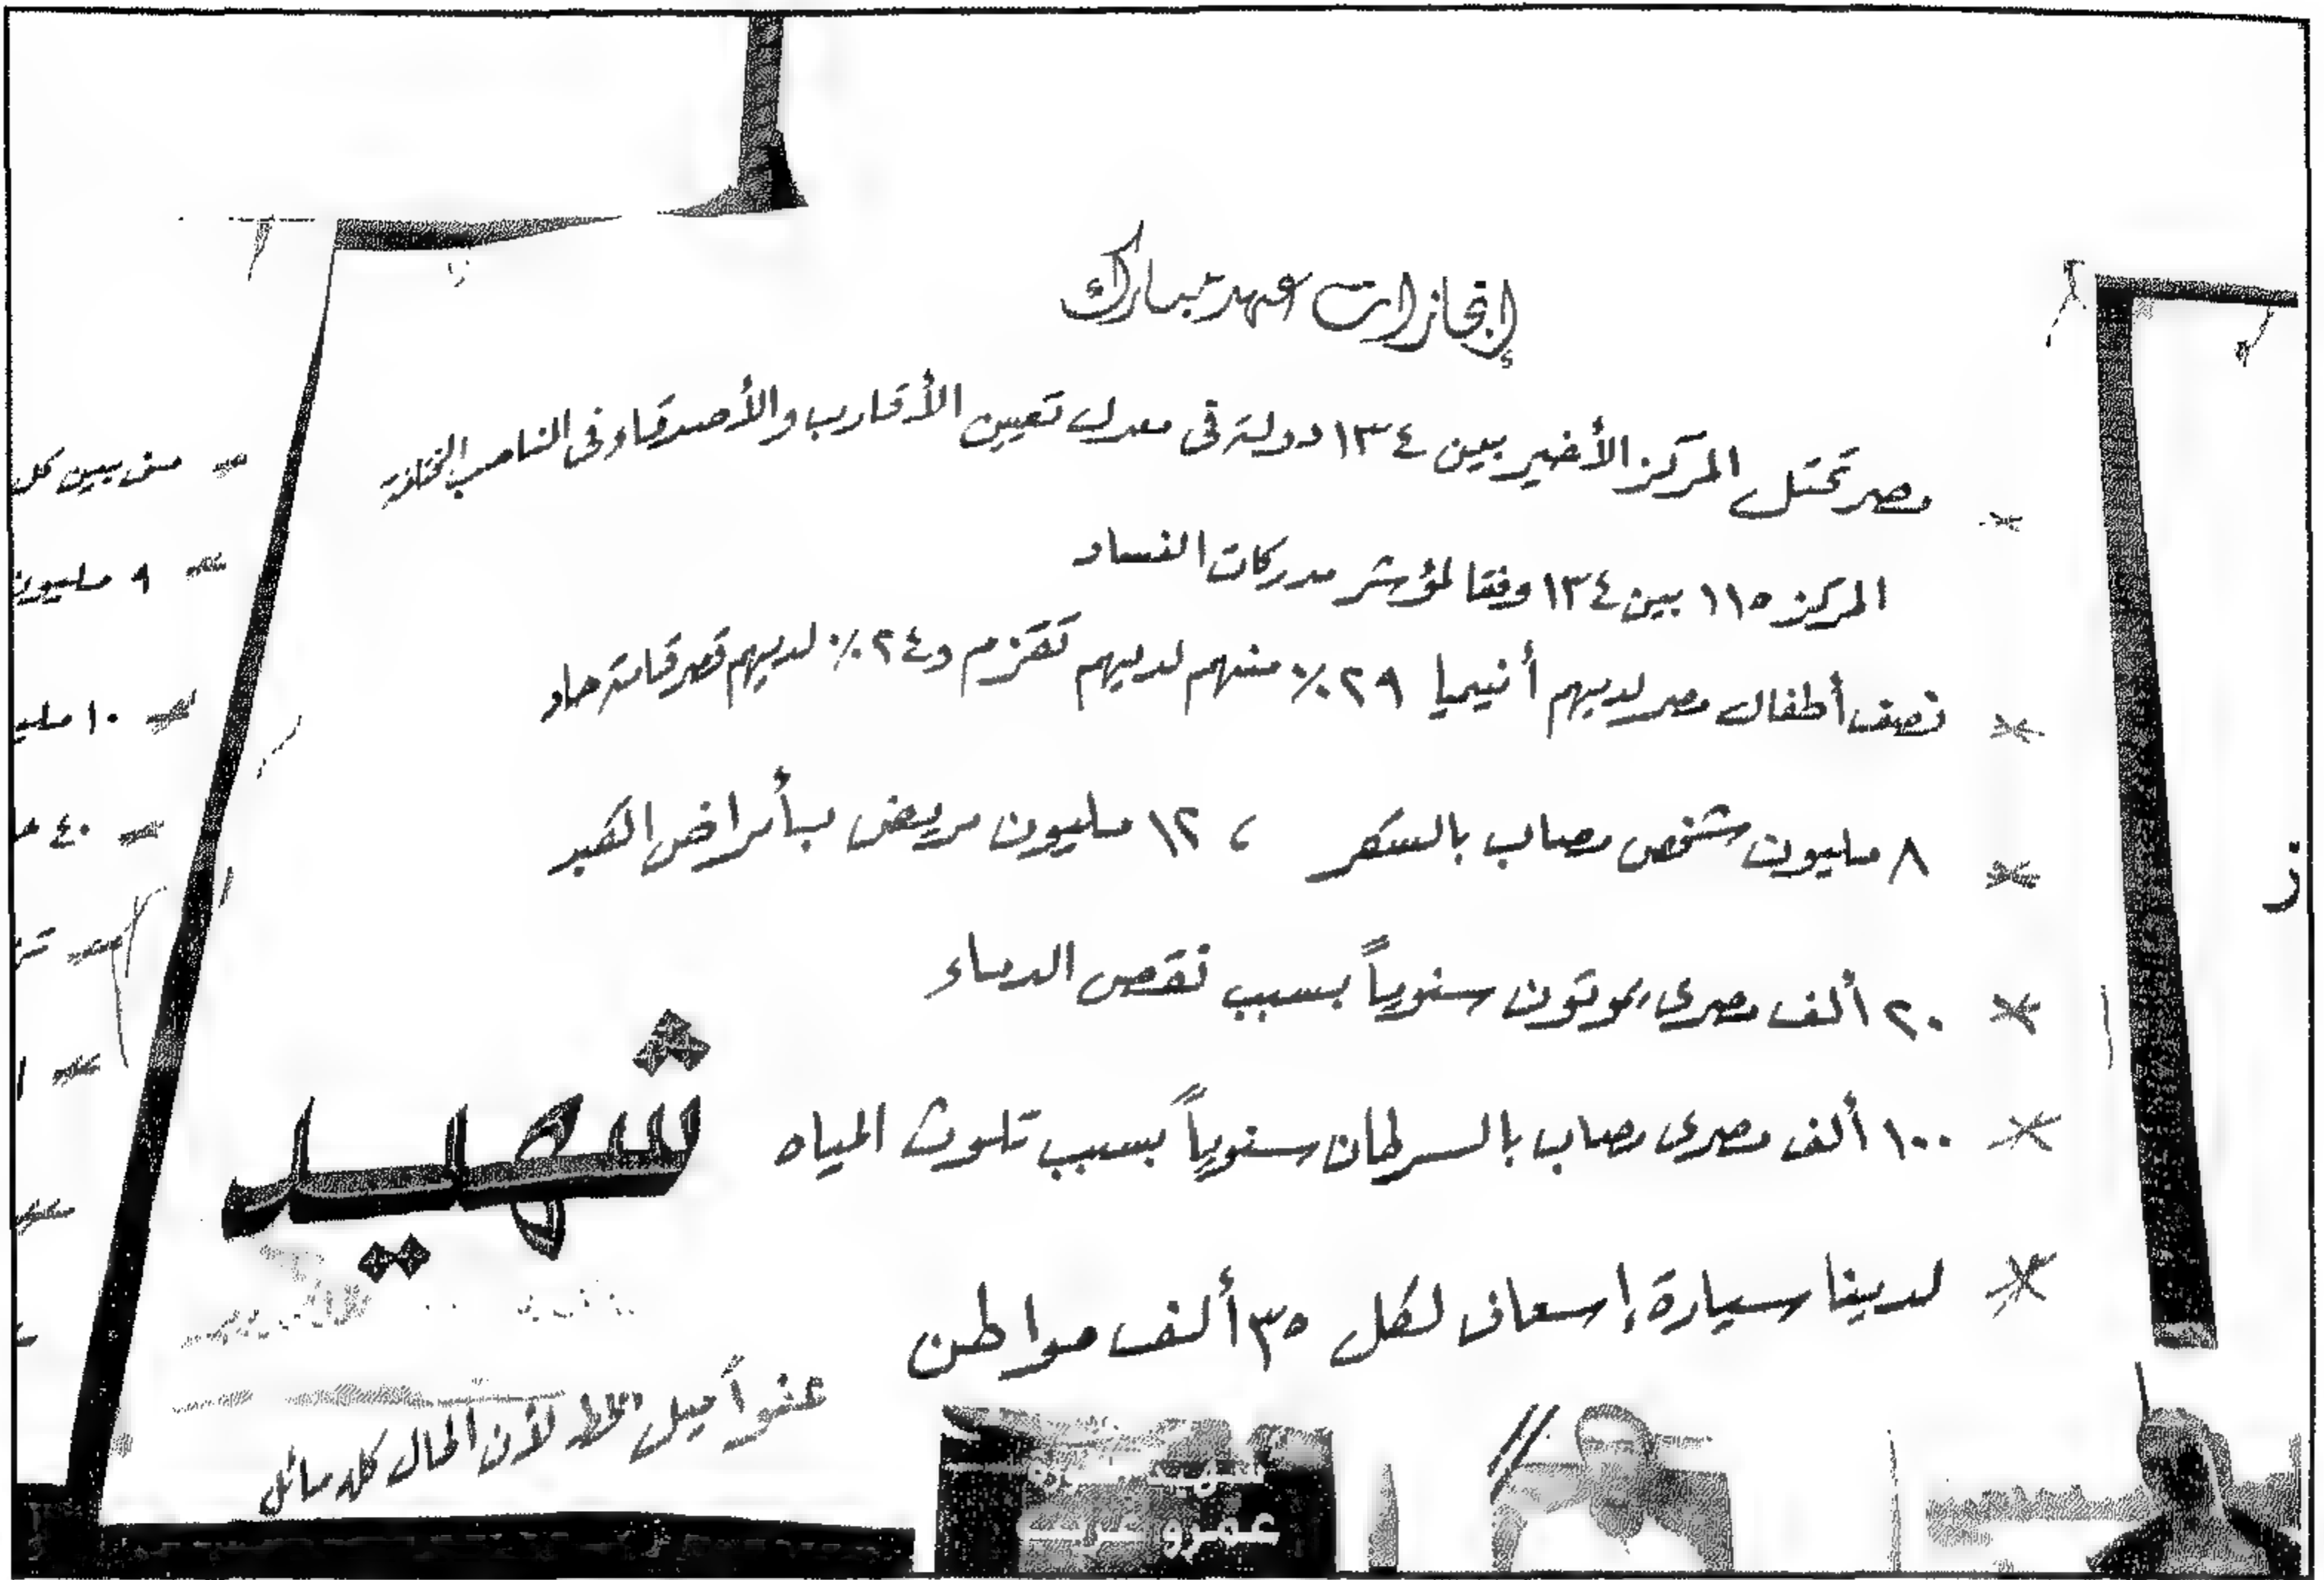 إنجازات عهد مبارك
* مصر تحتل المركز الأخير بين ١٣٤ دولة فى معدل تعيين الأقارب والأصدقاء فى المناصب المختلفة
المركز ١١٥ بين ١٣٤ وفقا لمؤشر مدركات الفساد
* نصف أطفال مصر لديهم أنيميا ٢٩٪ منهم لديهم تقزم و٢٤٪ لديهم قصر قامة حاد
* ٨ مليون شخص مصاب بالسكر ، ١٢ مليون مريض بأمراض الكبد
* ٢٠ ألف مصرى يموتون سنوياً بسبب نقص الدماء
* ١٠٠ ألف مصرى مصاب بالسرطان سنوياً بسبب تلوث المياه
* لدينا سيارة إسعاف لكل ٣٥ ألف مواطن
شهيد
عفواً ميل الخط لأن الحال كله مائل
شهيد
عمرو غريب
* من بين كل
* ٩ مليون
* ١٠ مليو
* ٤٠